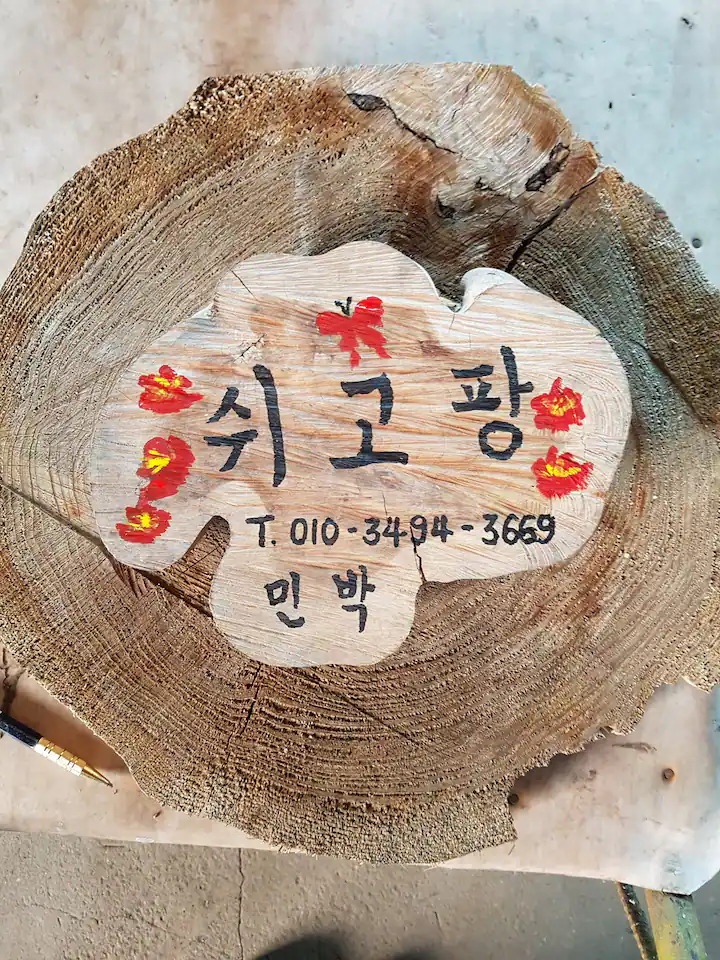 쉬고팡
T. 010-3494-3669
민박